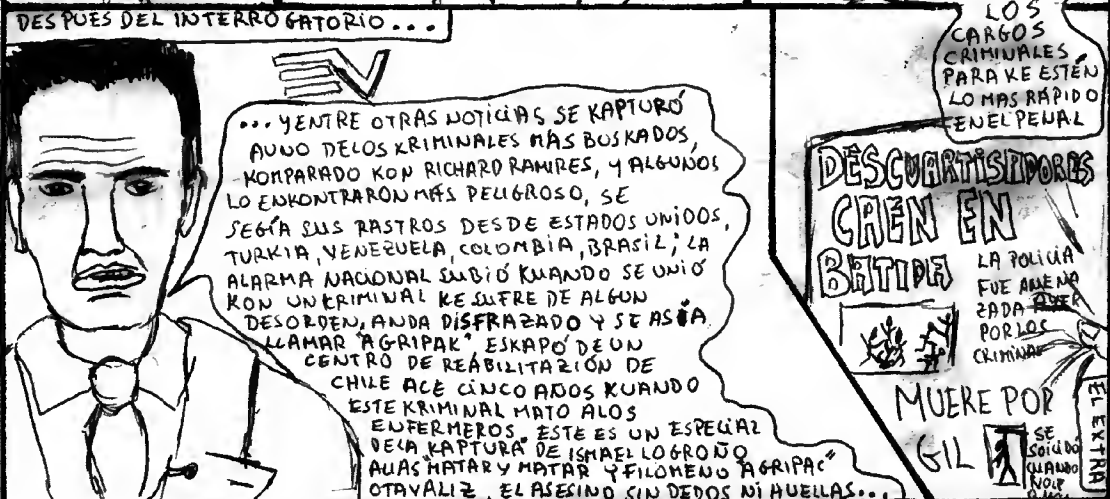 DESPUES DEL INTERROGATORIO...
EV
... Y ENTRE OTRAS NOTICIAS SE KAPTURÓ
A UNO DE LOS KRIMINALES MAS BUSKADOS,
KOMPARADO KON RICHARD RAMIRES, Y ALGUNOS
LO ENKONTRARON MÁS PELIGROSO, SE
SEGÍA SUS RASTROS DESDE ESTADOS UNIDOS,
TURKIA, VENEZUELA, COLOMBIA, BRASIL; LA
ALARMA NACIONAL SUBIÓ KUANDO SE UNIÓ
KON UN KRIMINAL KE SUFRE DE ALGUN
DESORDEN, ANDA DISFRAZADO Y SE ASÍA
LLAMAR "AGRIPAK" ESKAPÓ DE UN
CENTRO DE REÁBILITAZIÓN DE
CHILE ACE CINCO AÑOS KUANDO
ESTE KRIMINAL MATO A LOS
ENFERMEROS. ESTE ES UN ESPECIAL
DE LA KAPTURA" DE ISMAEL LOGROÑO
ALIAS MATAR Y MATAR Y FILOMENO "AGRIPAC"
OTAVALIZ, EL ASESINO SIN DEDOS NI HUELLAS...
LOS
CARGOS
CRIMINALES
PARA KE ESTÉN
LO MAS RÁPIDO
EN EL PENAL
DESCUARTISADORES
CAEN EN
BATIDA
LA POLICIA
FUE AMENA
ZADA
POR LOS
CRIMINAL
MUERE POR
GIL
SE
SUICIDÓ
CUANDO
EL EXTRA